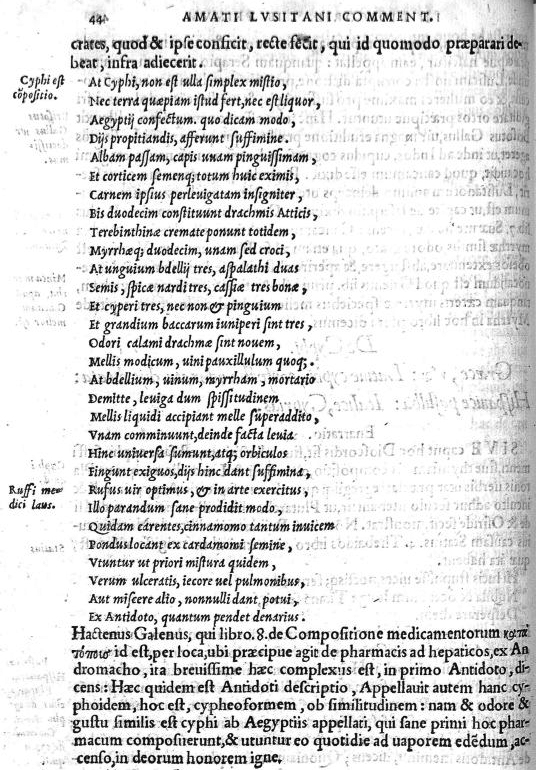 44 AMATI LVSITANI COMMENT.
crates, quod & ipse conficit, recte fecit, qui id quomodo præparari de-
beat, infra adiecerit.
Cyphi est
cōpositio.
At Cyphi, non est ulla simplex mistio,
Nec terra quæpiam istud fert, nec est liquor,
Aegyptij confectum. quo dicam modo,
Dijs propitiandis, afferunt suffimine.
Albam passam, capis unam pinguissimam,
Et corticem semenq; totum huic eximis,
Carnem ipsius perleuigatam insigniter,
Bis duodecim constituunt drachmis Atticis,
Terebinthinæ crematæ ponunt totidem,
Myrrhæq; duodecim, unam sed croci,
At unguium bdellij tres, aspalathi duas
Semis, spicæ nardi tres, cassiæ tres bonæ,
Et cyperi tres, nec non & pinguium
Et grandium baccarum iuniperi sint tres,
Odori calami drachmæ sint nouem,
Mellis modicum, uini pauxillulum quoq;.
At bdellium, uinum, myrrham, mortario
Demitte, leuiga dum spissitudinem
Mellis liquidi accipiant melle superaddito,
Vnam comminuunt, deinde facta leuia
Hinc uniuersa sumunt, atq; orbiculos
Fingunt exiguos, dijs hinc dant suffimina,
Ruffi me-
dici laus.
Rufus uir optimus, & in arte exercitus,
Illo parandum sane prodidit modo,
Quidam carentes, cinnamomo tantum inuicem
Pondus locant ex cardamomi semine,
Vtuntur ut priori mistura quidem,
Verum ulceratis, iecore uel pulmonibus,
Aut miscere alio, nonnulli dant, potui,
Ex Antidoto, quantum pendet denarius.
Hactenus Galenus, qui libro. 8. de Compositione medicamentorum κατὰ
τόπους id est, per loca, ubi præcipue agit de pharmacis ad hepaticos, ex An
dromacho, ita breuissime hæc complexus est, in primo Antidoto, di-
cens: Hæc quidem est Antidoti descriptio, Appellauit autem hanc cy-
phoidem, hoc est, cypheoformem, ob similitudinem: nam & odore &
gustu similis est cyphi ab Aegyptiis appellati, qui sane primi hoc phar-
macum composuerunt, & utuntur eo quotidie ad uaporem edēdum, ac-
censo, in deorum honorem igne.